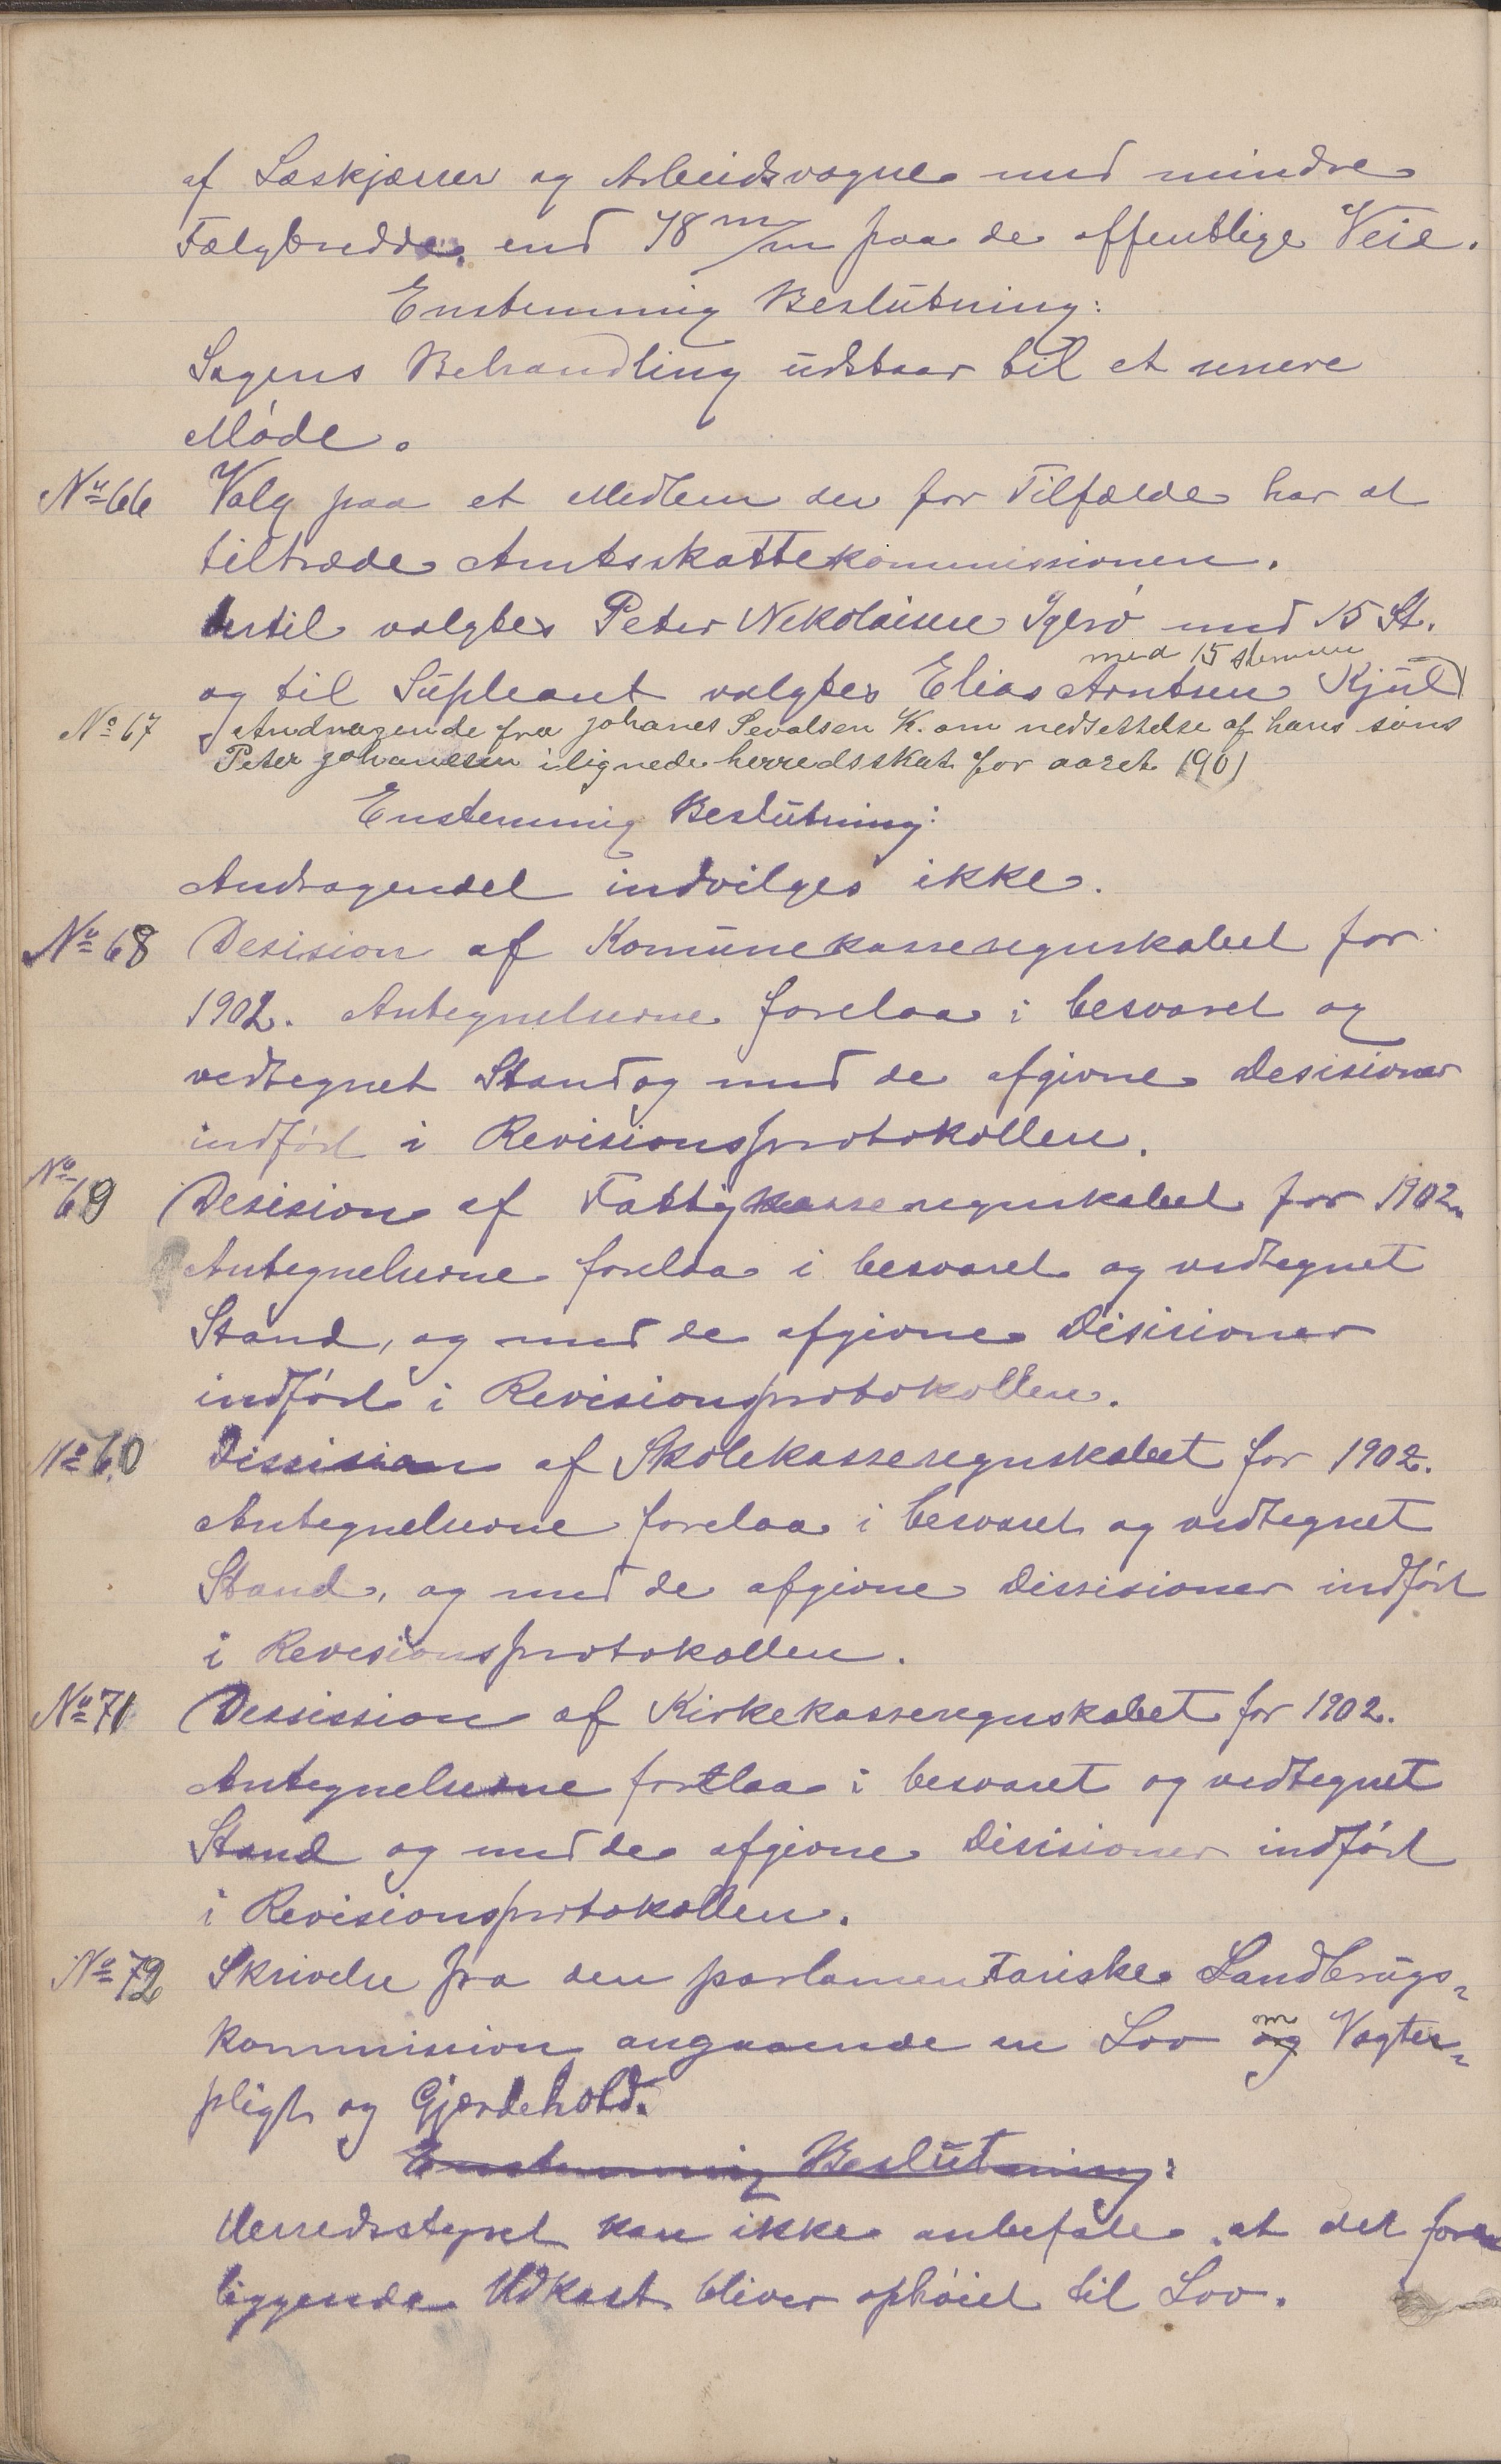 af Læskjærrer og Arbeidsvogne med mindre
Fælgbredde end 78 m/m paa de offentlige Veie.
Enstemmig Beslutning:
Sagens Behandling udstaar til et senere
Møde.
No 66 Valg paa et Medlem der for Tilfælde har at
tiltræde Amtsskattekommissionen.
Dertil valgtes Peter Nekolaisen Igerø med 15 St.
med 15 stemmer
og til Supleant valgtes Elias Arntsen Kjul
No 67 Andragende fra Johanes Sevalsen K. om nedsettelse af hans søns
Peter Johanesen ilignede herredsskat for aaret 1901
Enstemmig Beslutning:
Andragendet indvilges ikke.
No 68 Desision af Komunekasseregnskabet for
1902. Antegnelserne forelaa i besvaret og
vedtegnet Stand og med de afgivne Desisioner
indført i Revisionsprotokollen.
No 69 Desision af Fattigkasseregnskabet for 1902.
Antegnelserne forelaa i besvaret og vedtegnet
Stand, og med de afgivne Disisioner
indført i Revisionsprotokollen.
No 60 Dissision af Skolekasseregnskabet for 1902.
Antegnelserne forelaa i besvaret og vedtegnet
Stand, og med de afgivne Dissisioner indført
i Revesionsprotokollen.
No 71 Dessission af Kirkekasseregnskabet for 1902.
Antegnelserne forelaa i besvaret og vedtegnet
Stand og med de afgivne Disisioner indført
i Revisionsprotokollen.
No 72 Skrivelse fra den parlamentariske Landbrugs-
kommission angaaende en Lov og om Vogter-
pligt og Gjærdehold.
Enstemmig Beslutning:
Herredsstyret kan ikke anbefale at det fore
liggende Udkast bliver ophøiet til Lov.